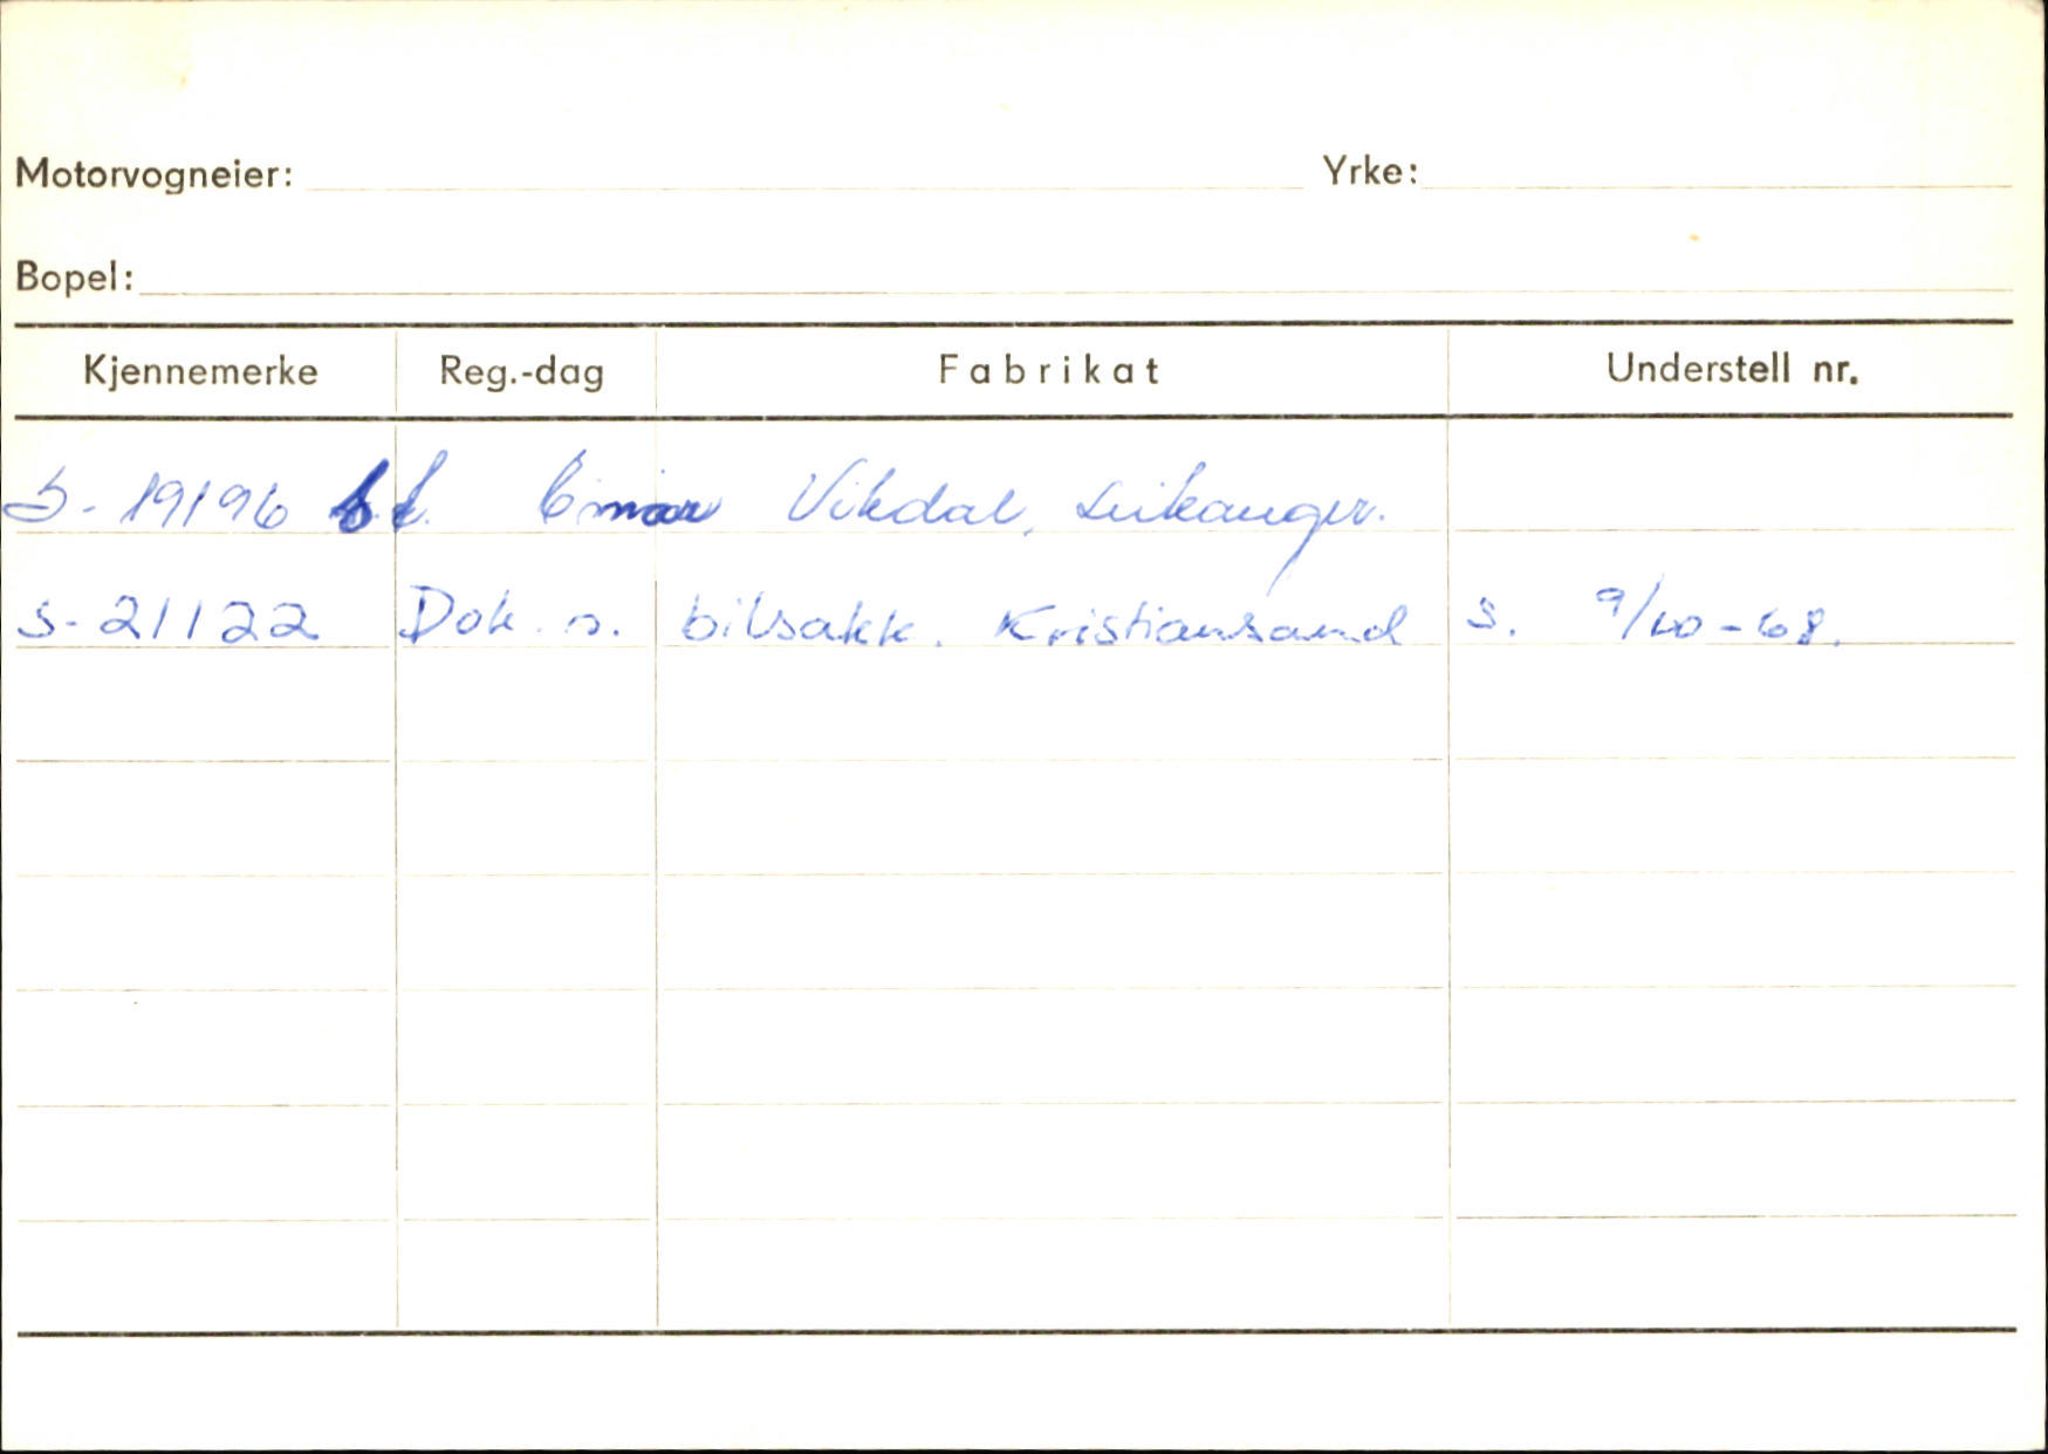 Motorvogneier: Yrke:
Bopel:
Kjennemerke Reg.-dag Fabrikat Understell nr.
S-19196 Einar Vikdal, Leikanger.
S-21122 Dok. s. bilsakk. Kristiansand S. 9/10-68.